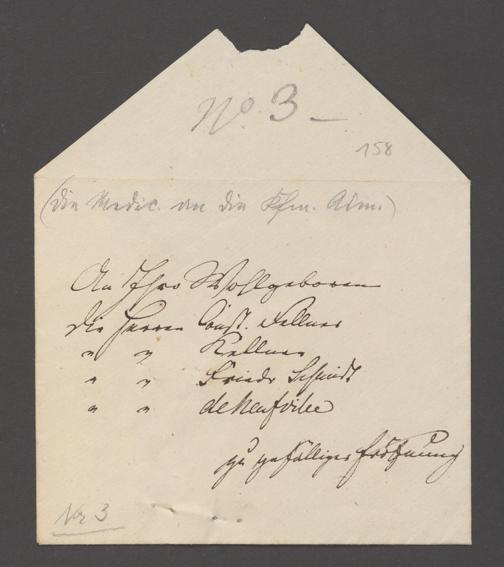 No. 3 —
158
(Die Medic. an die Kfm. Adm.)
An Ihro Wohlgeboren
die Herren Const. Fellner
" " Kellner
" " Friedr Schmidt
" " de Neufville
zu gefälliger Eröffnung
No 3